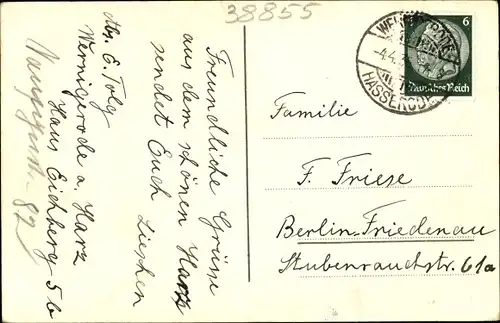 38855
Freundliche Grüsse
aus dem schönen Harz
sendet Euch Lieschen
Abs. E. Tolg
Wernigerode a. Harz
Haus Eichberg 5b
82
6
Deutsches Reich
HASSERODE
Familie
F. Friese
Berlin-Friedenau
Stubenrauchstr. 61a